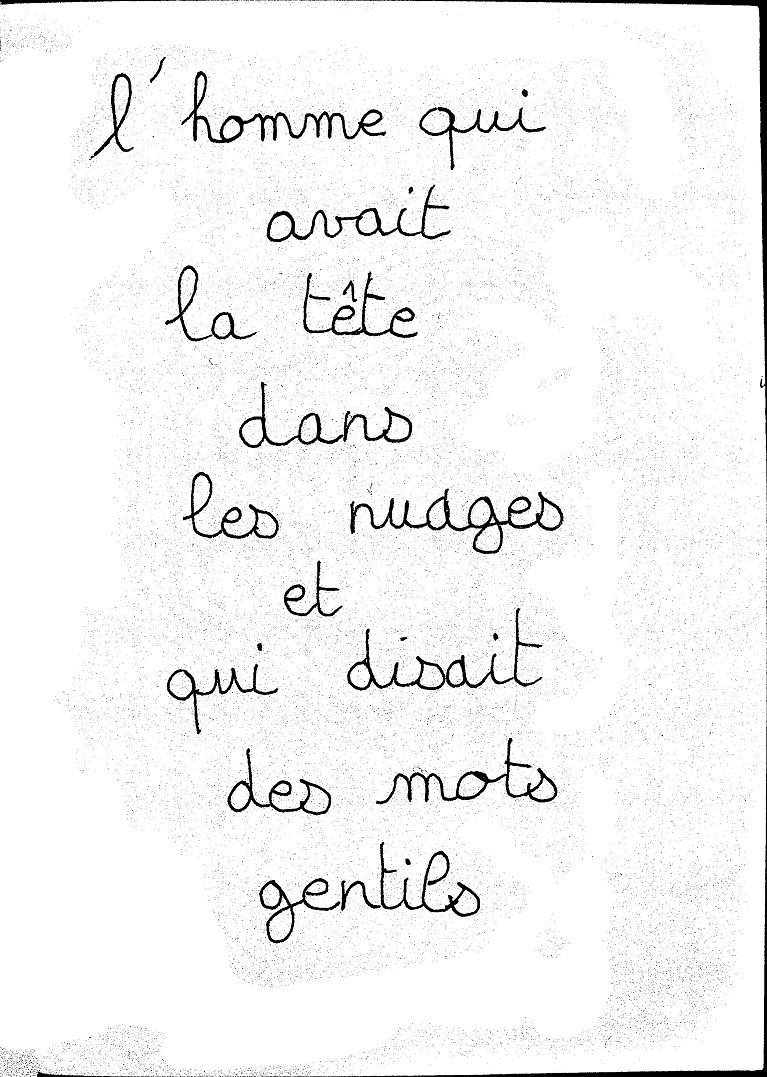 l'homme qui
avait
la tête
dans
les nuages
et
qui disait
des mots
gentils